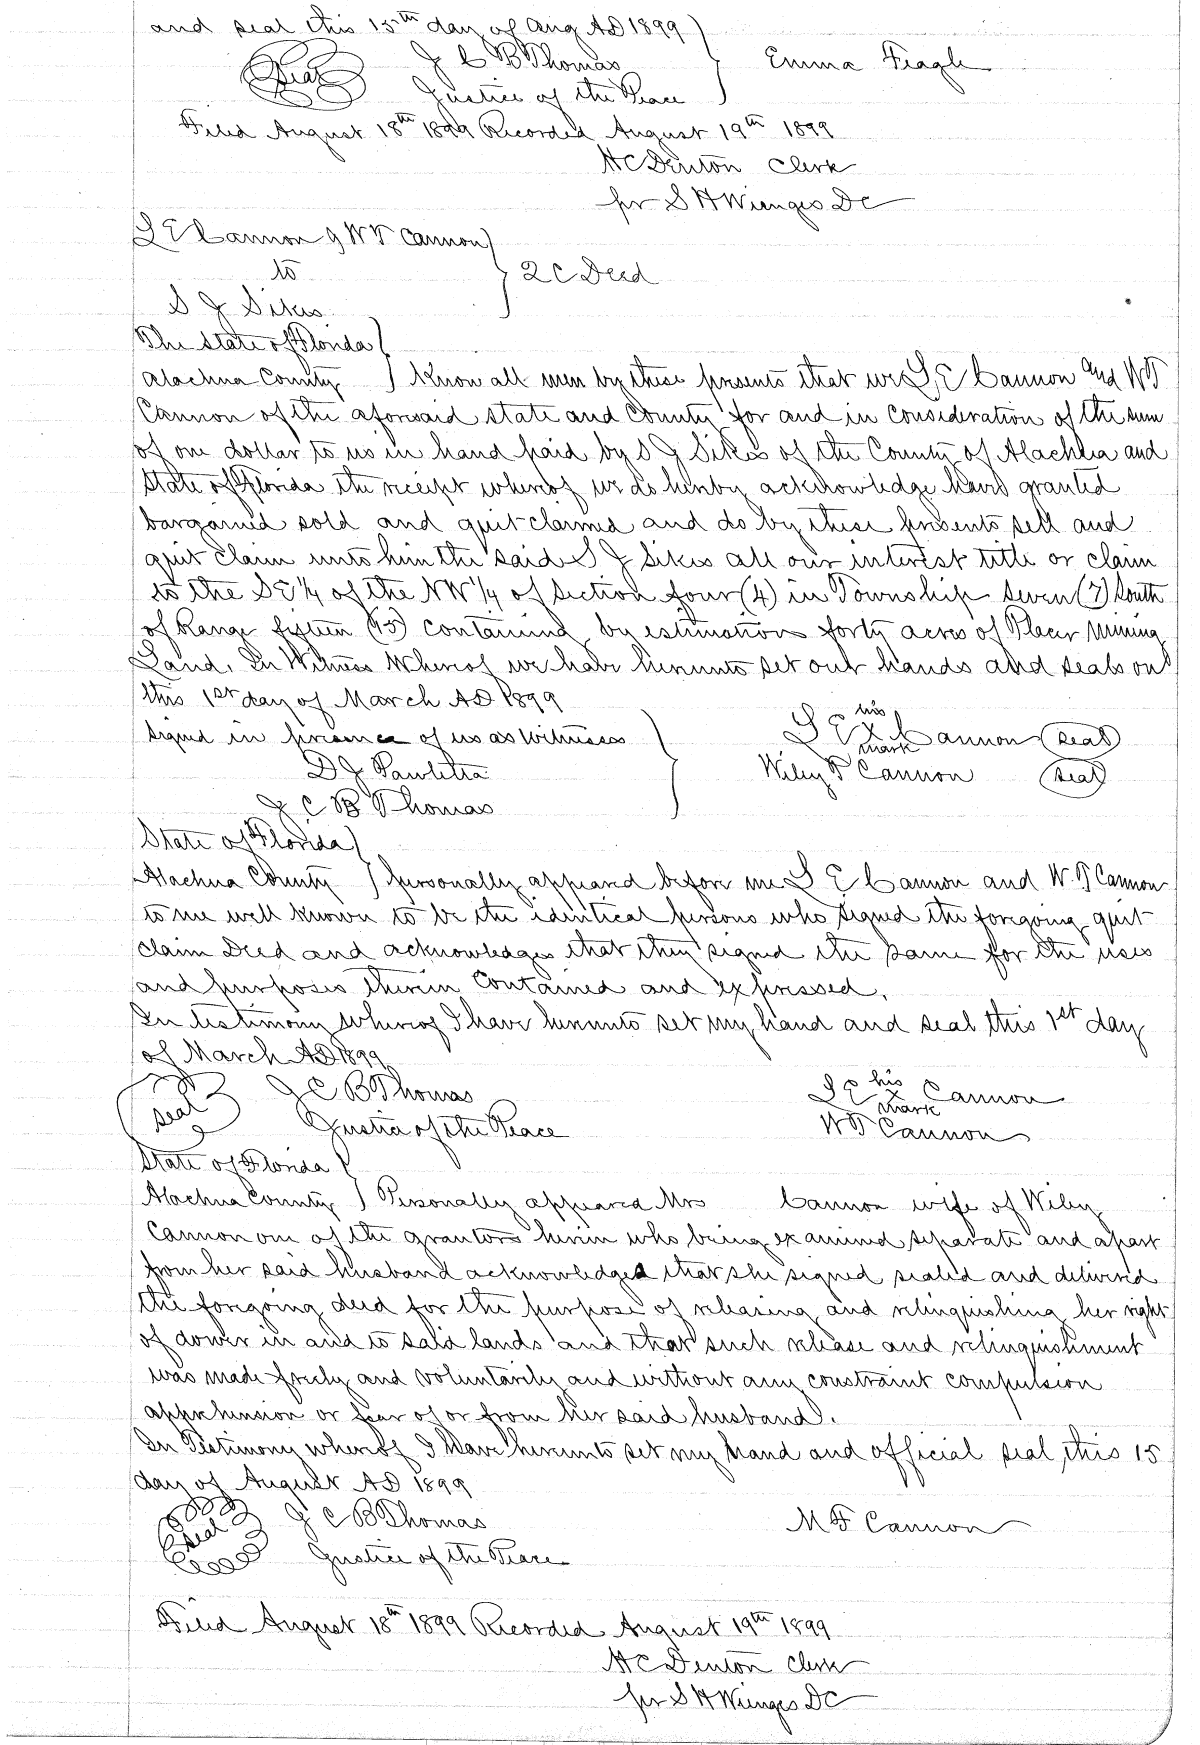 and seal this 15th day of Aug AD 1899
J C B Thomas
Emma Feagle
Seal
Justice of the Peace
Filed August 18th 1899 Recorded August 19th 1899
H C Denton Clerk
per S H Wienges DC
S E Cannon & W T Cannon
to
2 C Deed
S J Sikes
The State of Florida
Alachua County Know all men by these presents that we S, E Cannon and W T
Cannon of the aforesaid state and County for and in consideration of the sum
of one dollar to us in hand paid by S J Sikes of the County of Alachua and
State of Florida the receipt whereof we do hereby acknowledge have granted
bargained sold and quit claimed and do by these presents sell and
quit claim unto him the said S J Sikes all our interest title or claim
to the SE 1/4 of the NW 1/4 of Section four (4) in Township Seven (7) South
of Range fifteen (15) containing by estimation forty acres of Placer Mining
Land. In Witness Whereof we have hereunto set our hands and seals on
this 1st day of March AD 1899
Signed in presence of us as Witnesses
S E his x mark Cannon (seal)
D J
Wiley T Cannon (seal)
J C B Thomas
State of Florida
Alachua County personally appeared before me S E Cannon and W. T Cannon
to me well known to be the identical persons who signed the foregoing quit
claim Deed and acknowledges that they signed the same for the uses
and purposes therein contained and expressed.
In testimony whereof I have hereunto set my hand and seal this 1st day
of March AD 1899
seal
J C B Thomas
S E his x mark Cannon
Justice of the Peace
W T Cannon
State of Florida
Alachua County Personally appeared Mrs Cannon wife of Wiley
Cannon one of the grantors herein who being examined separate and apart
from her said husband acknowledged that she signed sealed and delivered
the foregoing deed for the purpose of releasing and relinquishing her right
of dower in and to said lands and that such release and relinquishment
was made freely and voluntarily and without any constraint compulsion
apprehension or fear of or from her said husband.
In Testimony whereof I have hereunto set my hand and official seal this 15
day of August AD 1899
seal
J C B Thomas
M F Cannon
Justice of the Peace
Filed August 18th 1899 Recorded August 19th 1899
H C Denton Clerk
per S H Wienges DC